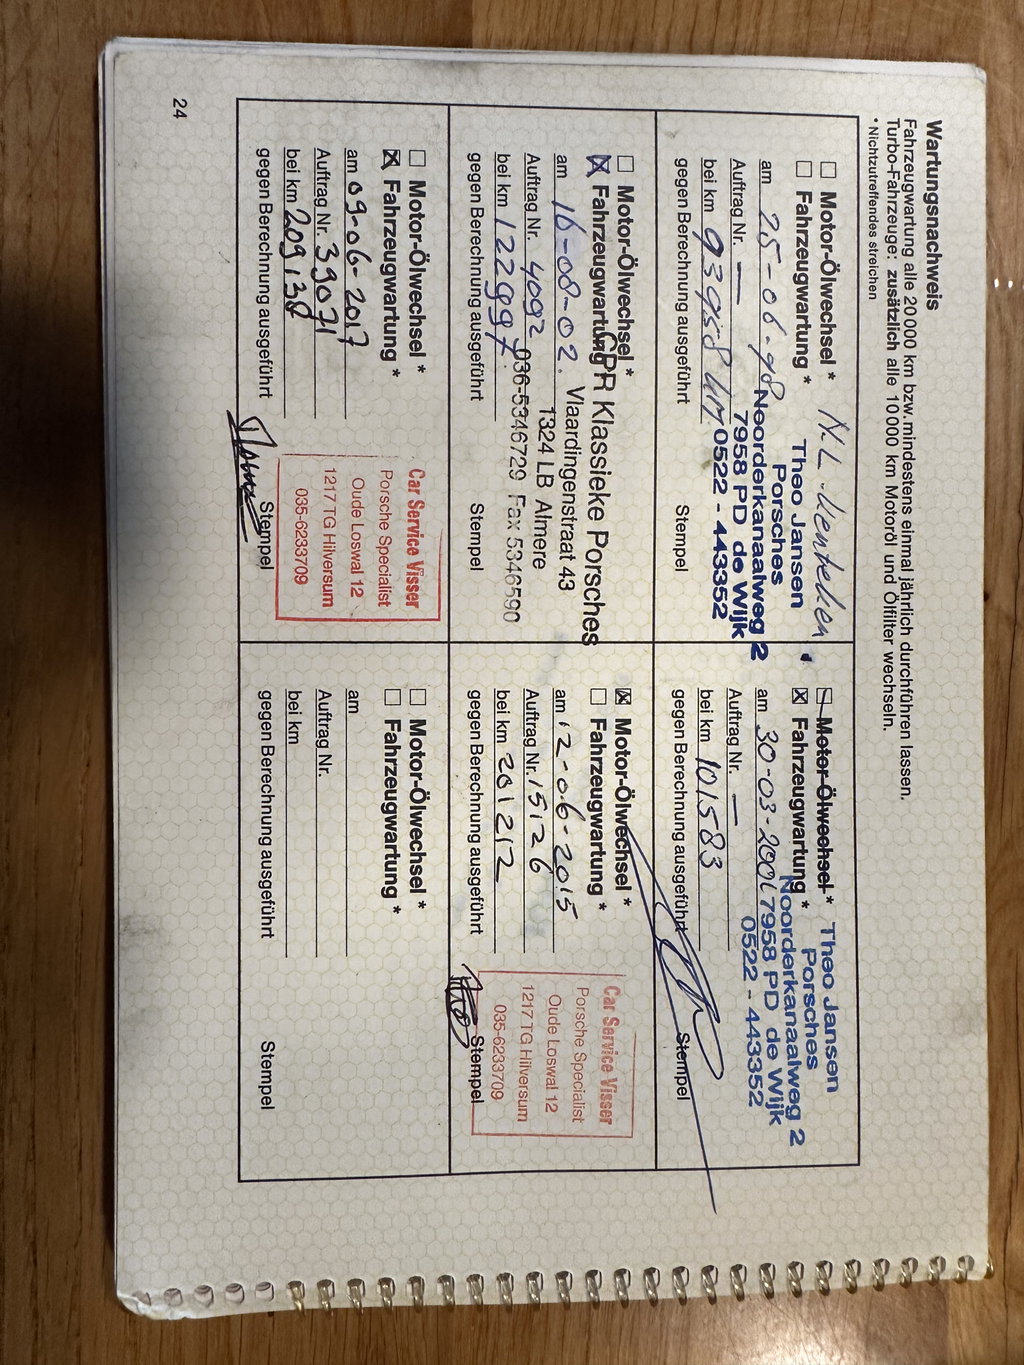 Wartungsnachweis
Fahrzeugwartung alle 20 000 km bzw. mindestens einmal jährlich durchführen lassen.
Turbo-Fahrzeuge: zusätzlich alle 10 000 km Motoröl und Ölfilter wechseln.
* Nichtzutreffendes streichen
Motor-Ölwechsel *
Fahrzeugwartung *
am 25-06-98
Auftrag Nr. —
bei km 93958 km
gegen Berechnung ausgeführt
NL-kenteken
Theo Jansen
Porsches
Noorderkanaalweg 2
7958 PD de Wijk
0522 - 443352
Stempel
Motor-Ölwechsel *
Fahrzeugwartung *
am 30-03-2001
Auftrag Nr. —
bei km 101583
gegen Berechnung ausgeführt
Theo Jansen
Porsches
Noorderkanaalweg 2
7958 PD de Wijk
0522 - 443352
Stempel
Motor-Ölwechsel *
Fahrzeugwartung *
am 16-08-02.
Auftrag Nr. 4092
bei km 122997.
gegen Berechnung ausgeführt
CPR Klassieke Porsches
Vlaardingenstraat 43
1324 LB Almere
036-5346729 Fax 5346590
Stempel
Motor-Ölwechsel *
Fahrzeugwartung *
am 12-06-2015
Auftrag Nr. 15126
bei km 201212
gegen Berechnung ausgeführt
Car Service Visser
Porsche Specialist
Oude Loswal 12
1217 TG Hilversum
035-6233709
Stempel
Motor-Ölwechsel *
Fahrzeugwartung *
am 09-06-2017
Auftrag Nr. 39071
bei km 209138
gegen Berechnung ausgeführt
Car Service Visser
Porsche Specialist
Oude Loswal 12
1217 TG Hilversum
035-6233709
Stempel
Motor-Ölwechsel *
Fahrzeugwartung *
am
Auftrag Nr.
bei km
gegen Berechnung ausgeführt
Stempel
24